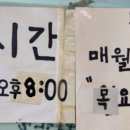 시간
오후 8:00
매월
"목요